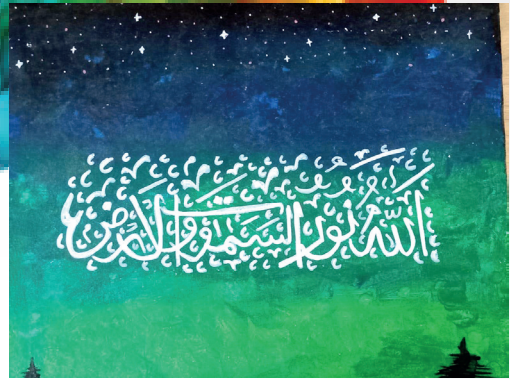 الله نور السموت والأرض